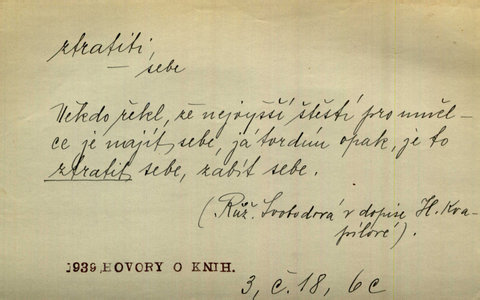 ztratiti,
— sebe
Někdo řekl, že nejvyšší štěstí pro uměl-
ce je najít sebe, já tvrdím opak, je to
ztratit sebe, zabít sebe.
(Růž. Svobodová v dopise H. Kva-
pilové).
1939, HOVORY O KNIH.
3, č. 18, 6c